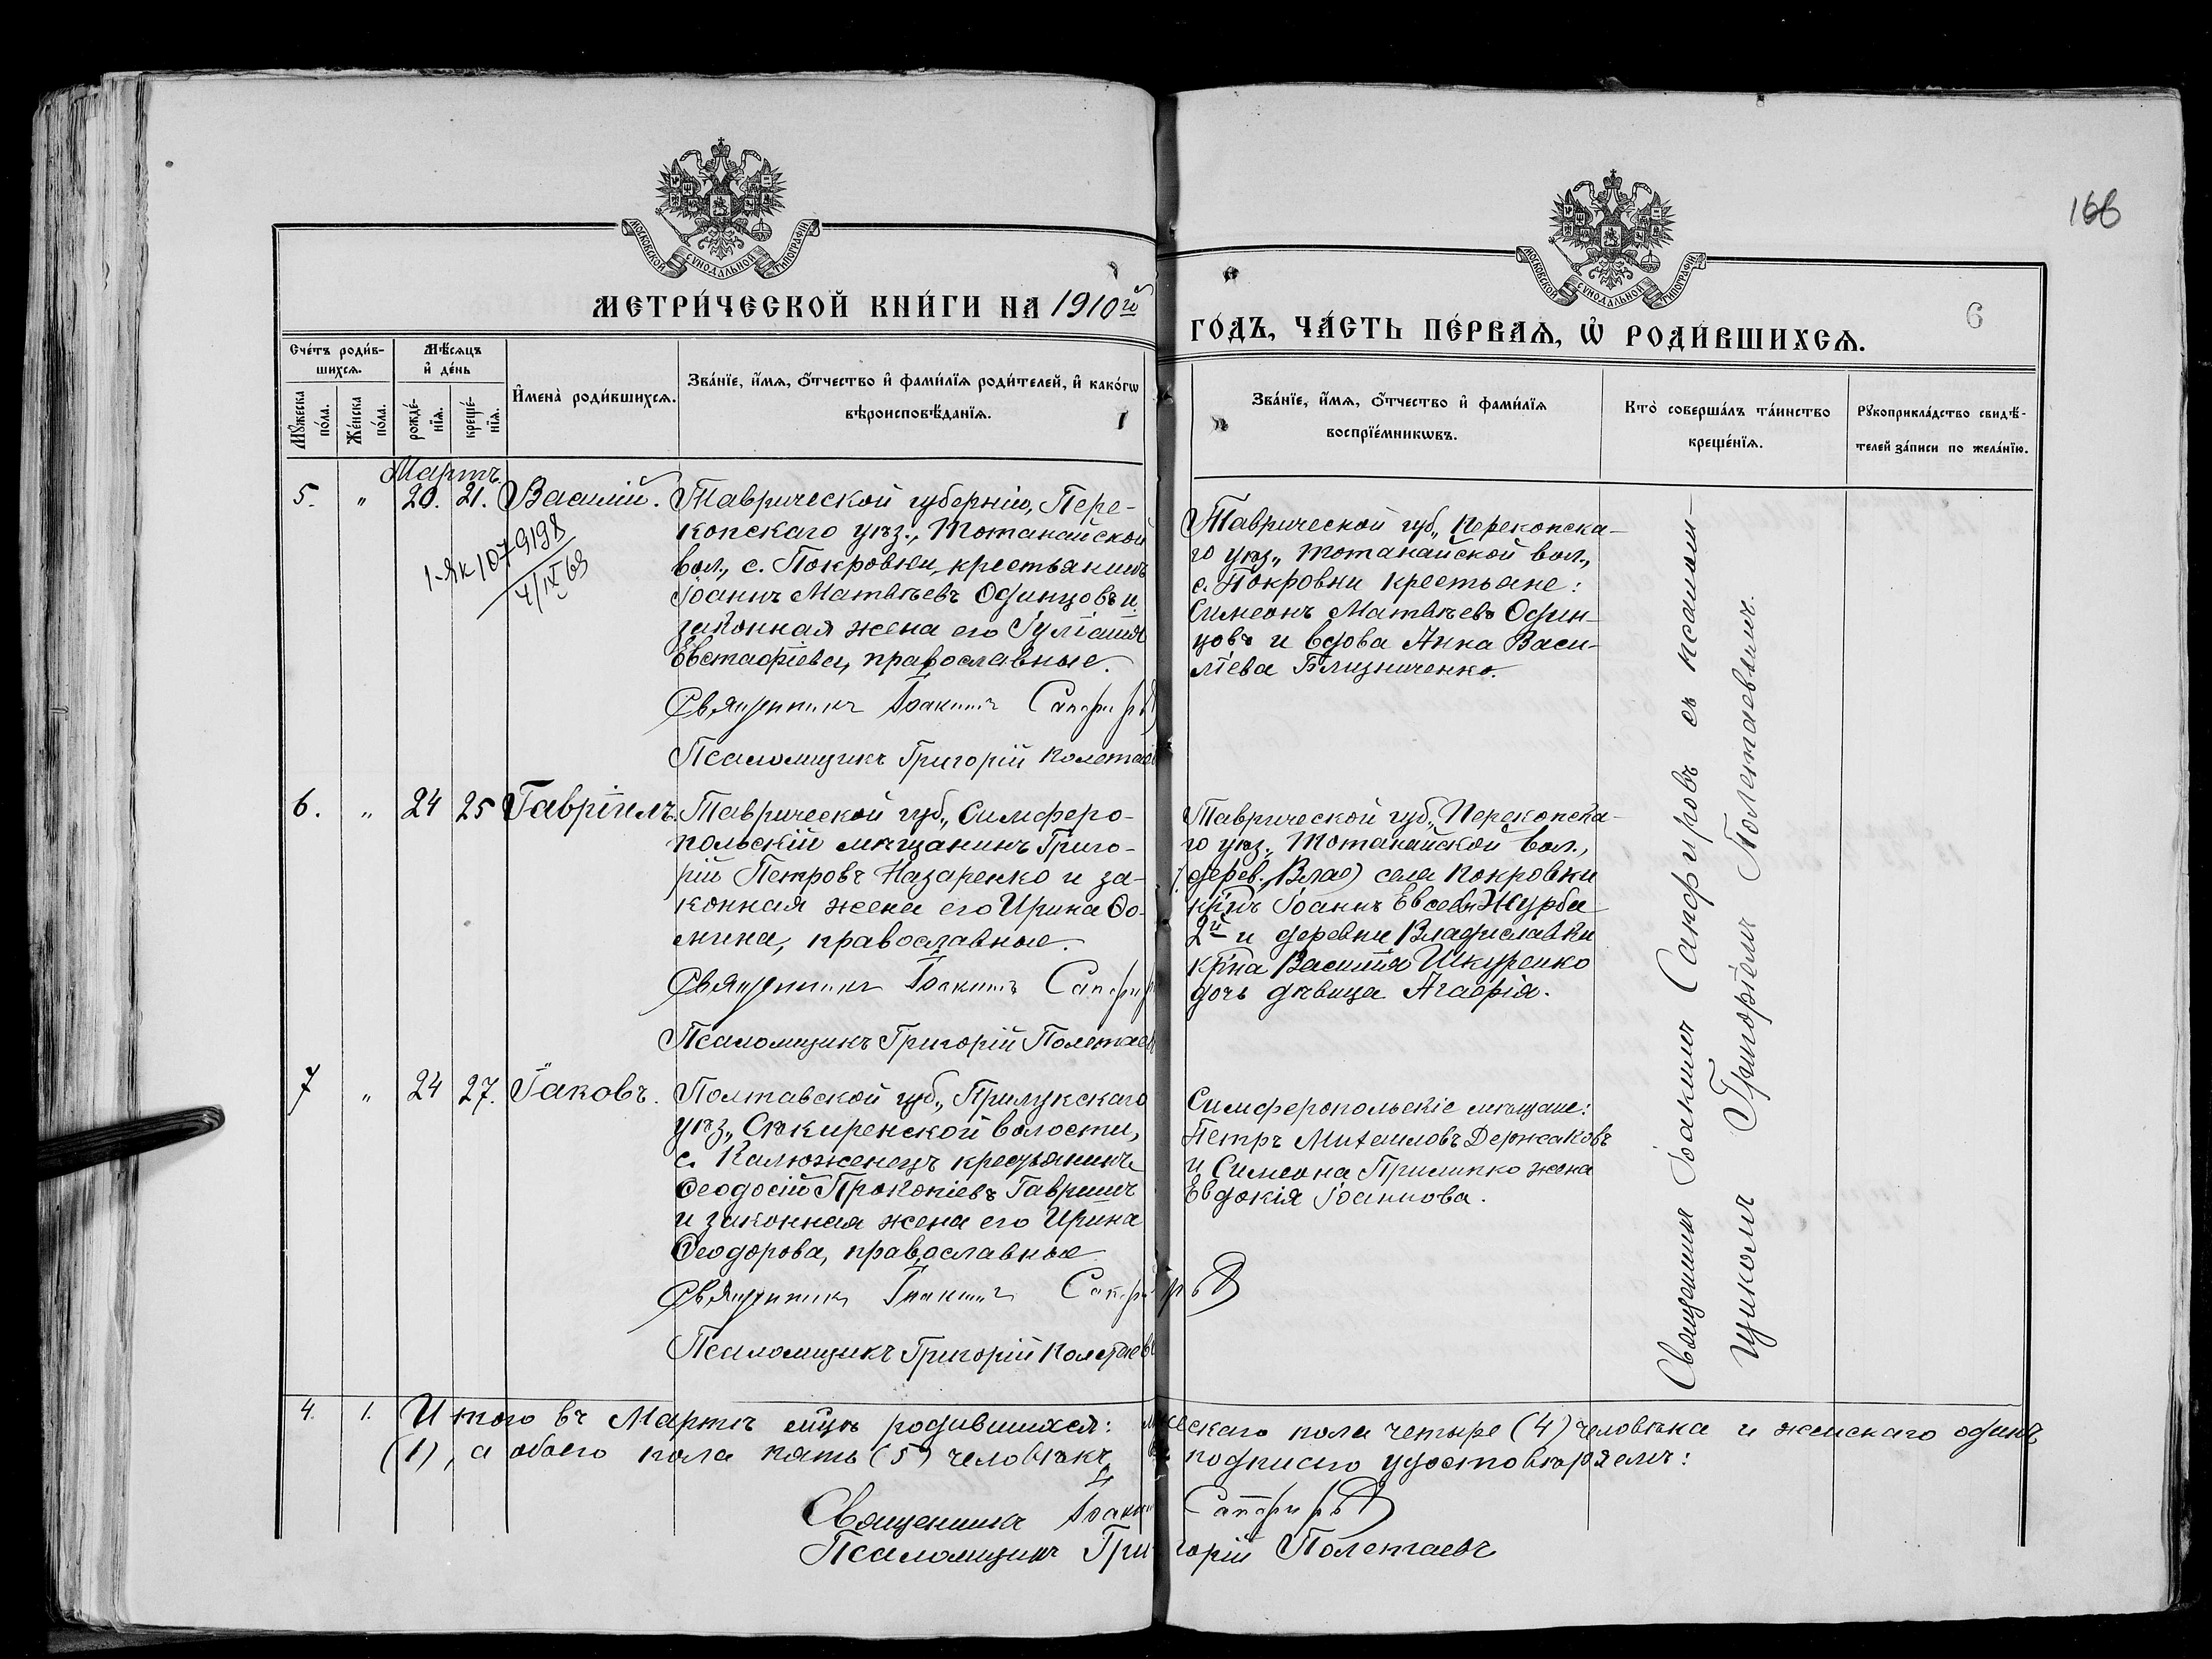 166
6
МОСКОВСКОЙ СѴНОДАЛЬНОЙ ТИПОГРАФІИ
МОСКОВСКОЙ СѴНОДАЛЬНОЙ ТИПОГРАФІИ
МЕТРИ́ЧЕСКОЙ КНИ́ГИ НА 1910й
ГО́ДЪ, ЧА́СТЬ ПЕ́РВАѦ, Ѡ҆ РОДИ́ВШИХСѦ.
Сче́тъ роди́в-
шихсѧ.
Мꙋ́жеска
по́ла.
Же́нска
по́ла.
Мѣ́сѧцъ
и҆ де́нь
рожде́-
нїѧ.
креще́-
нїѧ.
И҆мена̀ роди́вшихсѧ.
Зва́нїе, и҆́мѧ, ѻ҆́тчество и҆ фами́лїѧ роди́телей, и҆ како́гѡ
вѣроисповѣ́данїѧ.
Зва́нїе, и҆́мѧ, ѻ҆́тчество и҆ фами́лїѧ
воспрїе́мникѡвъ.
Кто̀ соверша́лъ та́инство
креще́нїѧ.
Рꙋкоприкла́дство свидѣ́-
телей за́писи по жела́нїю.
Мартъ.
5. " 20. 21. Василій.
1-Як 1079198
4/IX 69
Таврической губерніи, Пере-
копскаго уѣз., Тотанайской
вол., с. Покровки, крестьянинъ
Іоаннъ Матвѣевъ Одинцовъ и
законная жена его Іуліанія
Евстафіева, православные.
Священникъ Іоакимъ Сапфировъ
Псаломщикъ Григорій Полетаевъ
Таврической губ., Перекопска-
го уѣз., Тотанайской вол.,
с. Покровки крестьяне:
Симеонъ Матвѣевъ Один-
цовъ и вдова Анна Васи-
ліева Близниченко.
6. " 24 25 Гавріилъ.
Таврической губ., Симферо-
польскій мѣщанинъ Григо-
рій Петровъ Назаренко и за-
конная жена его Ирина Ѳо-
мина, православные.
Священникъ Іоакимъ Сапфировъ
Псаломщикъ Григорій Полетаевъ
Таврической губ., Перекопска-
го уѣз., Тотанайской вол.,
(дерев. Влад) села Покровки
кр̃нъ Іоаннъ Евсеевъ Журба
2й и деревни Владиславки
кр̃на Василія Шкуренко
дочь дѣвица Агафія.
7 " 24 27. Іаковъ.
Полтавской губ., Прилукскаго
уѣз., Сѣкиренской волости,
с. Калюженецъ крестьянинъ
Ѳеодосій Прокопіевъ Гавришъ
и законная жена его Ирина
Ѳеодорова, православные
Священникъ Іоакимъ Сапфировъ
Псаломщикъ Григорій Полетаевъ
Симферопольскіе мѣщане:
Петръ Михаиловъ Держаковъ
и Симеона Прилипко жена
Евдокія Іоаннова.
Священникъ Іоакимъ Сапфировъ съ псалом-
щикомъ Григоріемъ Полетаевымъ.
4. 1. Итого въ Мартѣ мц̃ѣ родившихся: мужескаго пола четыре (4) человѣка и женскаго одинъ
(1), а обоего пола пять (5) человѣкъ, подписью удостовѣряемъ:
Священникъ Іоакимъ Сапфировъ
Псаломщикъ Григорій Полетаевъ